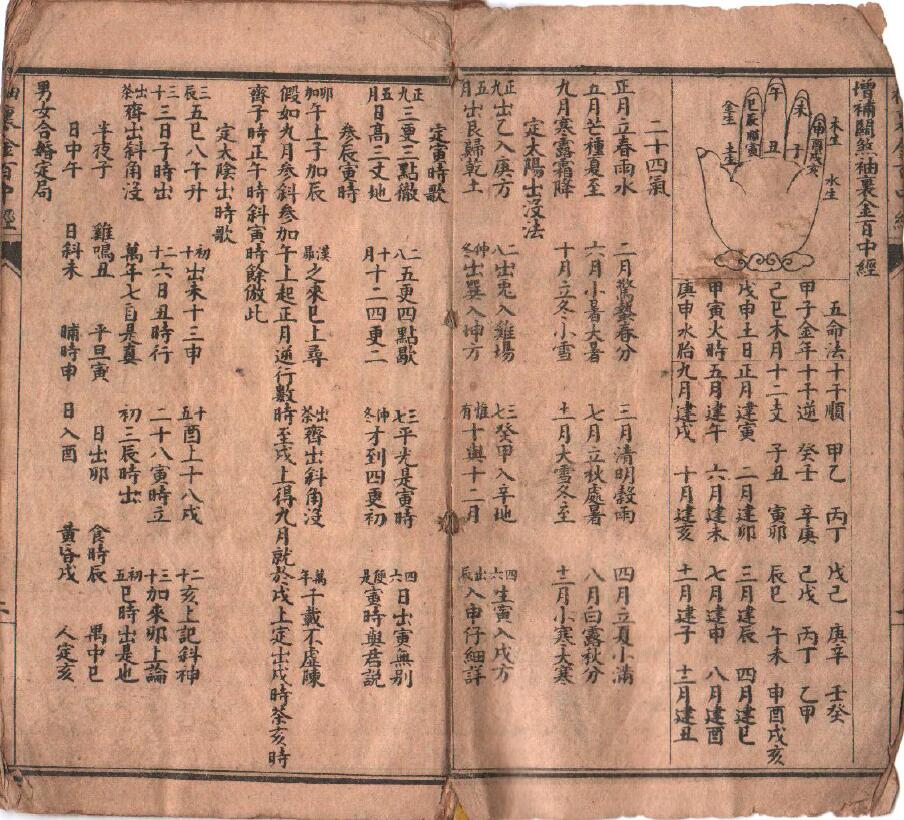 增補關煞袖裏金百中經
午
未
巳
辰
丑
子
木生
水生
金生
土生
五命法十干順　甲乙　丙丁　戊己　庚辛　壬癸
甲子金年十干逆　癸壬　辛庚　己戊　丙丁　乙甲
己巳木月十二支　子丑　寅卯　辰巳　午未　申酉戌亥
戊申土日正月建寅　二月建卯　三月建辰　四月建巳
甲寅火時五月建午　六月建未　七月建申　八月建酉
庚申水胎九月建戌　十月建亥　十一月建子　十二月建丑
二十四氣
正月立春雨水　二月驚蟄春分　三月清明穀雨　四月立夏小滿
五月芒種夏至　六月小暑大暑　七月立秋處暑　八月白露秋分
九月寒露霜降　十月立冬小雪　十一月大雪冬至　十二月小寒大寒
定太陽出沒法
正九出乙入庚方　二八出兎入雞塲　三七癸甲入辛地　四六生寅入戌方
五月出艮歸乾土　仲冬出巽入坤方　惟有十與十二月　出辰入申仔細詳
定寅時歌
正九五更三點徹　二八五更四點歇　三七平光是寅時　四六日出寅無別
五月日高三丈地　十月十二四更二　仲冬才到四更初　便是寅時與君說
參辰寅時
卯加午上子加辰　漢尋之來巳上尋　出荼齊出斜角沒　萬年千載不虛陳
假如九月參斜參加午上起正月逆行數時至戌上得九月就於戌上定出戌時荼亥時
齊子時正午時斜寅時餘倣此
定太陰出時歌
三辰五巳八午升　初十出未十三申　十五酉上十八戌　二十亥上記斜神
三十三日子時出　二十六日丑時行　二十八寅時立　三十加來卯上論
出荼齊出斜角沒　萬年七自是眞　初三辰時出　初五巳時出是也
半夜子　雞鳴丑　平旦寅　日出卯　食時辰　禺中巳
日中午　日斜未　晡時申　日入酉　黃昏戌　人定亥
男女合婚定局
袖裏金百中經